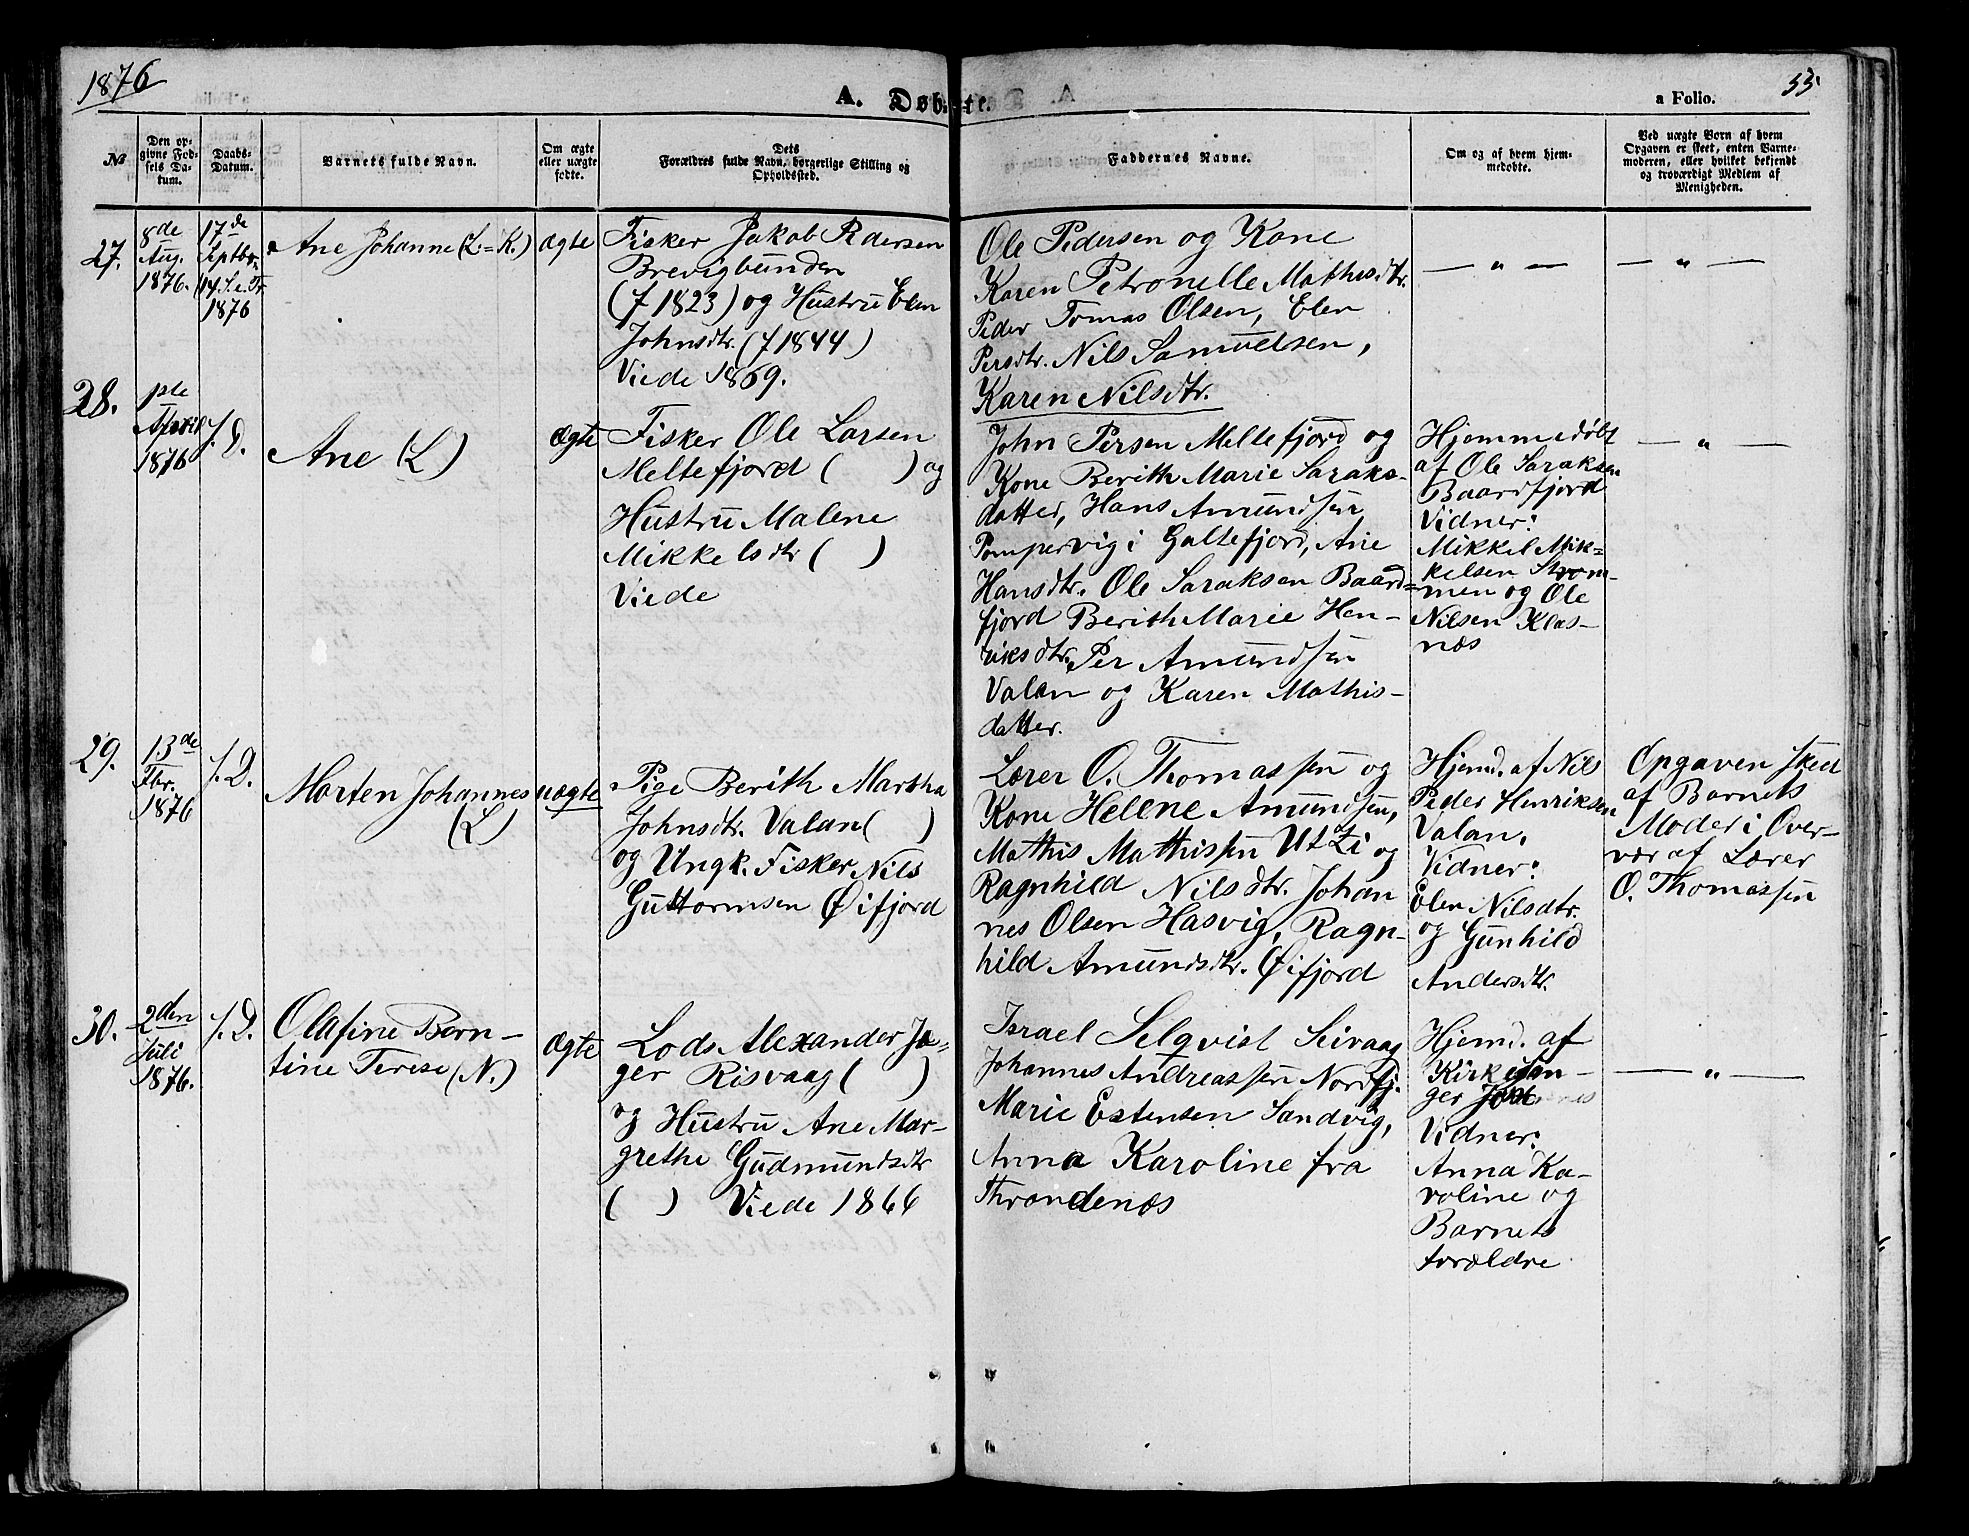 1876
A. Døbte.
a Folio.
55
№
Den opgivne Fødsels Datum.
Daabs-Datum.
Barnets fulde Navn.
Om ægte eller uægte fødte.
Dets Forældres fulde Navn, borgerlige Stilling og Opholdssted.
Faddernes Navne.
Om og af hvem hjemmedøbte.
Ved uægte Børn af hvem Opgaven er skeet, enten Barnemoderen, eller hvilket bekjendt og troværdigt Medlem af Menigheden.
27.
8de
Aug.
1876.
17de
Septbr.
14.S.e.Tr.
1876
Ane Johanne (L=K.)
Ægte
Fisker Jakob Pedersen
Brevigbunden
(f 1823) og Hustru Elen
Johnsdtr. (f 1844)
Viede 1869.
Ole Pedersen og Kone
Karen Petronelle Mathisdtr.
Peder Tomas Olsen, Elen
Persdtr. Nils Samuelsen,
Karen Nilsdtr.
— " —
— " —
28.
1ste
April
1876
s. D.
Ane (L)
Ægte
Fisker Ole Larsen
Meltefjord ( ) og
Hustru Malene
Mikkelsdtr ( )
Viede
John Persen Meltefjord og
Kone Berith Marie Saraks-
datter, Hans Amundsen
Pompervig i Galtefjord, Ane
Hansdtr. Ole Saraksen Baard=
fjord Berith Marie Hen-
riksdtr. Per Amundsen
Valan og Karen Mathis-
datter.
Hjemmedøbt
af Ole Saraksen
Baardfjord
Vidner:
Mikkel Mik=
kelsen Strøm-
men og Ole
Nilsen Klas-
næs
— " —
29.
13de
Fbr.
1876
s. D.
Morten Johannes
(L)
uægte
Pige Berith Martha
Johnsdtr. Valan ( )
og Ungk. Fisker Nils
Guttormsen Øifjord
Lærer O. Thomassen og
Kone Helene Amundsen,
Mathis Mathissen Utzi og
Ragnhild Nilsdtr. Johan
nes Olsen Hasvig, Ragn-
hild Amundsdtr. Øifjord
Hjemd. af Nils
Peder Henriksen
Valan.
Vidner:
Elen Nilsdtr.
og Gunhild
Andersdtr.
Opgaven skeet
af Barnets
Moder i Over-
vær af Lærer
O. Thomassen
30.
2den
Juli
1876.
s. D.
Olafine Bern-
tine Terese (N.)
Ægte
Lods Alexander Jæ-
ger Risvaag ( )
og Hustru Ane Mar-
grethe Gudmundsdtr
( ) Viede 1866
Israel Selqvist Seivaag
Johannes Andreassen Nordfj.
Marie Estensen Sandvig,
Anna Karoline fra
Throndenæs
Hjemd. af
Kirkesan-
ger
Vidner:
Anna Ka-
roline og
Barnets
forældre
— " —